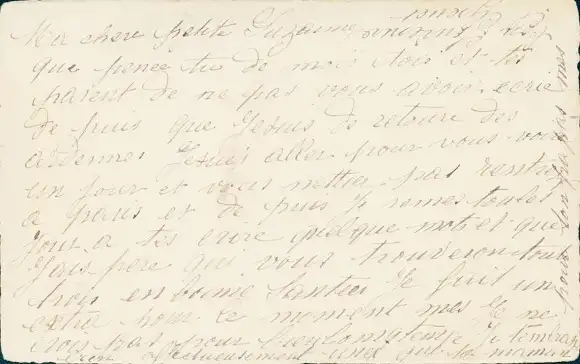 Ma cher petite Suzanne
que pence tu de mois tois et tes
parent de ne pas vous avoir ecrie
de puis que Jesuis de retoure des
ardennes Jesuis aller pour vous voir
un jour et vous nettier pas rentre
a paris et de puis Je remes toules
Jour a tes crire quelque mots et que
Jais pere qui vous trouveron tout
trou en bonne Santier Je suit un
extra pour le moment mes Je ne
crois pas pour longtemp Je
affectueusement
pour pas mes